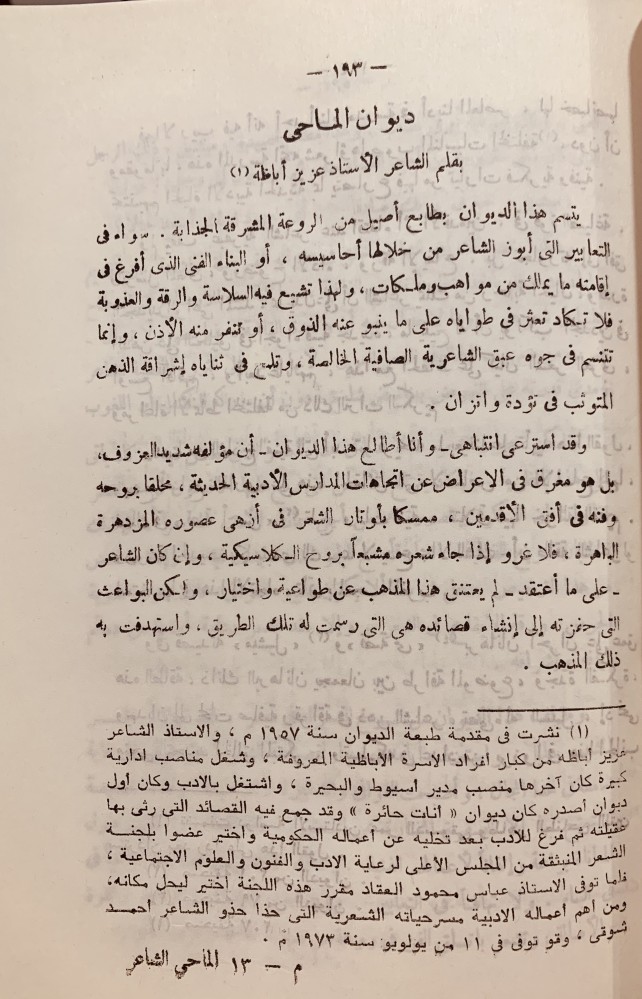 — ١٩٣ —
ديوان الماحى
بقلم الشاعر الأستاذ عزيز أباظة (١)
يتسم هذا الديوان بطابع أصيل من الروعة المشرقة الجذابة . سواء فى
التعابير التى أبرز الشاعر من خلالها أحاسيسه ، أو البناء الفنى الذى أفرغ فى
إقامته ما يملك من مواهب وملكات ، ولهذا تشيع فيه السلاسة والرقة والعذوبة
فلا تكاد تعثر فى طواياه على ما ينبو عنه الذوق ، أو تنفر منه الأذن ، وإنما
تتنسم فى جوه عبق الشاعرية الصافية الخالصة ، وتلمح فى ثناياه إشراقة الذهن
المتوثب فى تؤدة واتزان .
وقد استرعى انتباهى ـ وأنا أطالع هذا الديوان ـ أن مؤلفه شديد العزوف،
بل هو مغرق فى الإعراض عن اتجاهات المدارس الأدبية الحديثة ، محلقا بروحه
وفنه فى أفق الأقدمين ، ممسكا بأوتار الشعر فى أزهى عصوره المزدهرة
الباهرة ، فلا غرو إذا جاء شعره مشبعاً بروح الكلاسيكية ، وإن كان الشاعر
ـ على ما أعتقد ـ لم يعتنق هذا المذهب عن طواعية واختيار ، ولكن البواعث
التى حفزته إلى إنشاء قصائده هى التى رسمت له تلك الطريق ، واستهدفت به
ذلك المذهب .
(١) نشرت فى مقدمة طبعة الديوان سنة ١٩٥٧ م ، والاستاذ الشاعر
عزيز أباظه من كبار افراد الاسرة الاباظية المعروفة ، وشغل مناصب ادارية
كبيرة كان آخرها منصب مدير اسيوط والبحيرة ، واشتغل بالادب وكان أول
ديوان أصدره كان ديوان « انات حائرة » وقد جمع فيه القصائد التى رثى بها
عقيلته ثم فرغ للادب بعد تخليه عن أعماله الحكومية واختير عضوا بلجنة
الشعر المنبثقة من المجلس الأعلى لرعاية الادب والفنون والعلوم الاجتماعية ،
فلما توفى الاستاذ عباس محمود العقاد مقرر هذه اللجنة اختير ليحل مكانه،
ومن اهم أعماله الادبية مسرحياته الشعرية التى حذا حذو الشاعر احمد
شوقى ، وقو توفى فى ١١ من يولويو سنة ١٩٧٣ م .
م — ١٣ الماحي الشاعر